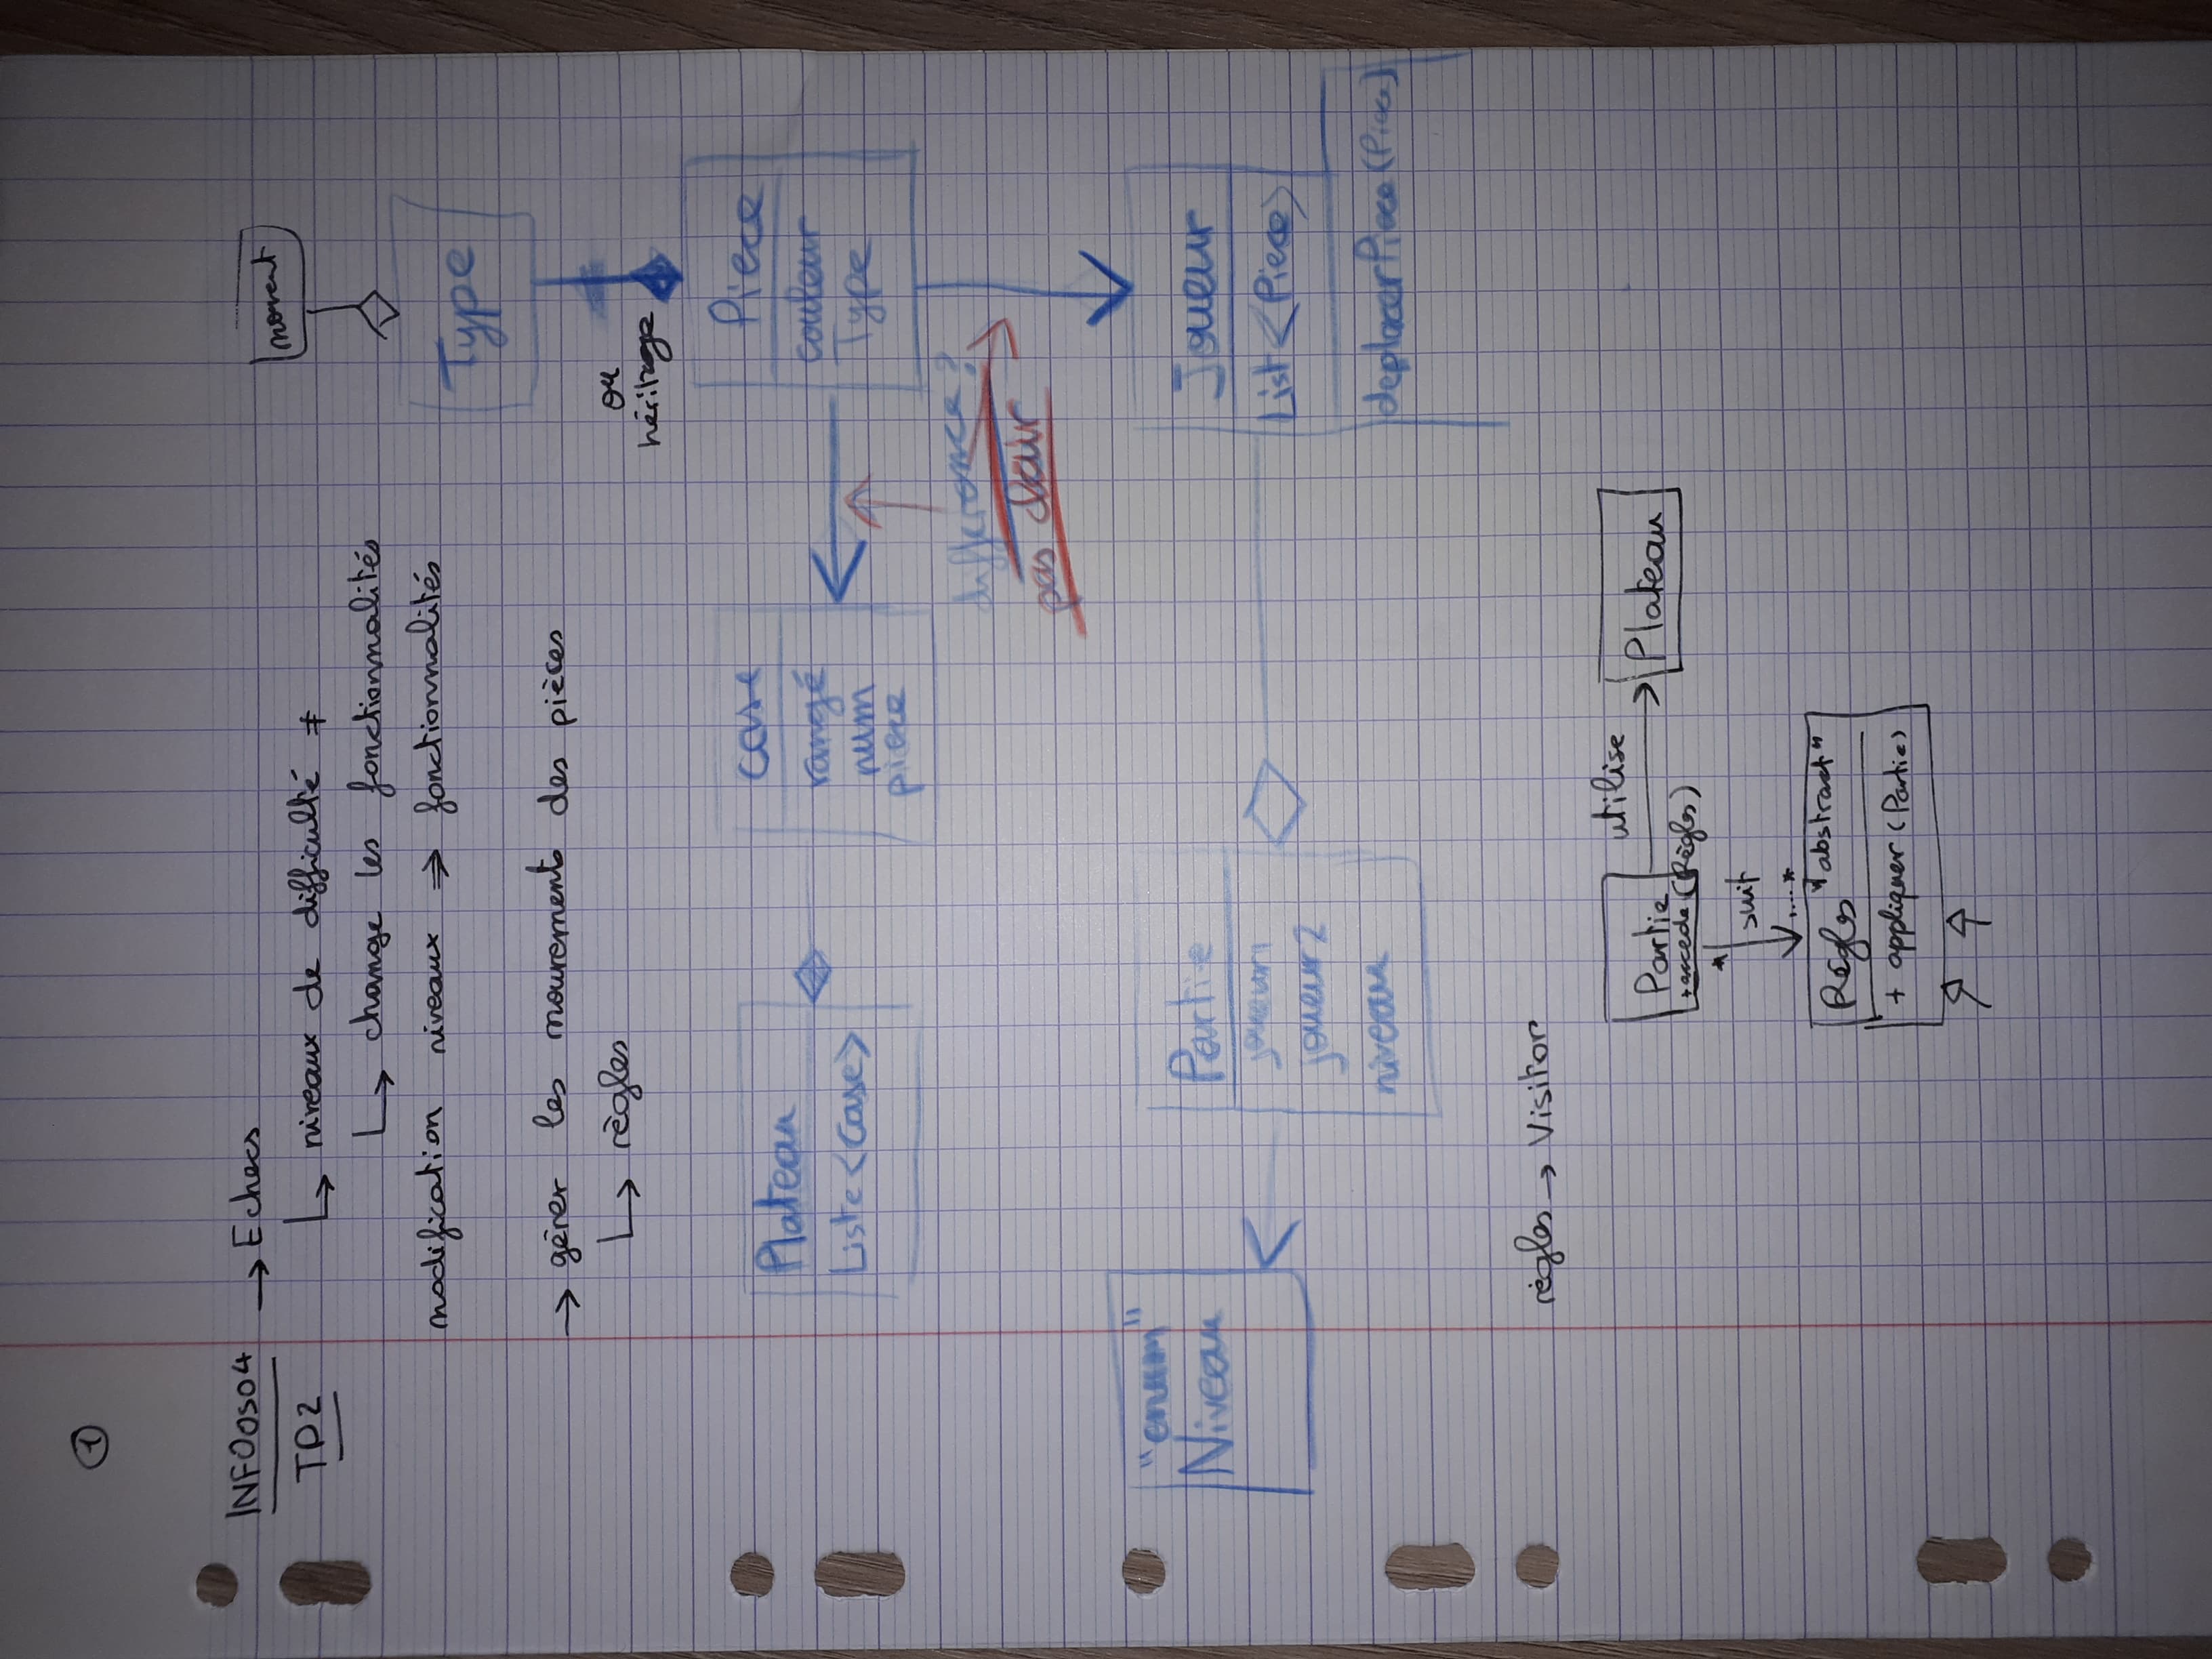 ①
INFO0504 → Echecs
TD2
↳ niveaux de difficulté ≠
↳ change les fonctionnalités
modification niveaux ⇒ fonctionnalités
→ gérer les mouvements des pièces
↳ règles
Type
ou
héritage
Plateau
Liste <Case>
case
rangé
num
piece
Piece
couleur
Type
différence ?
pas clair
"enum"
Niveau
Partie
joueur1
joueur2
niveau
Joueur
List <Piece>
deplacerPiece (Piece)
règles → Visitor
Partie
utilise
Plateau
(Règles)
*
suit
....*
Règles "abstract"
+ appliquer (Partie)